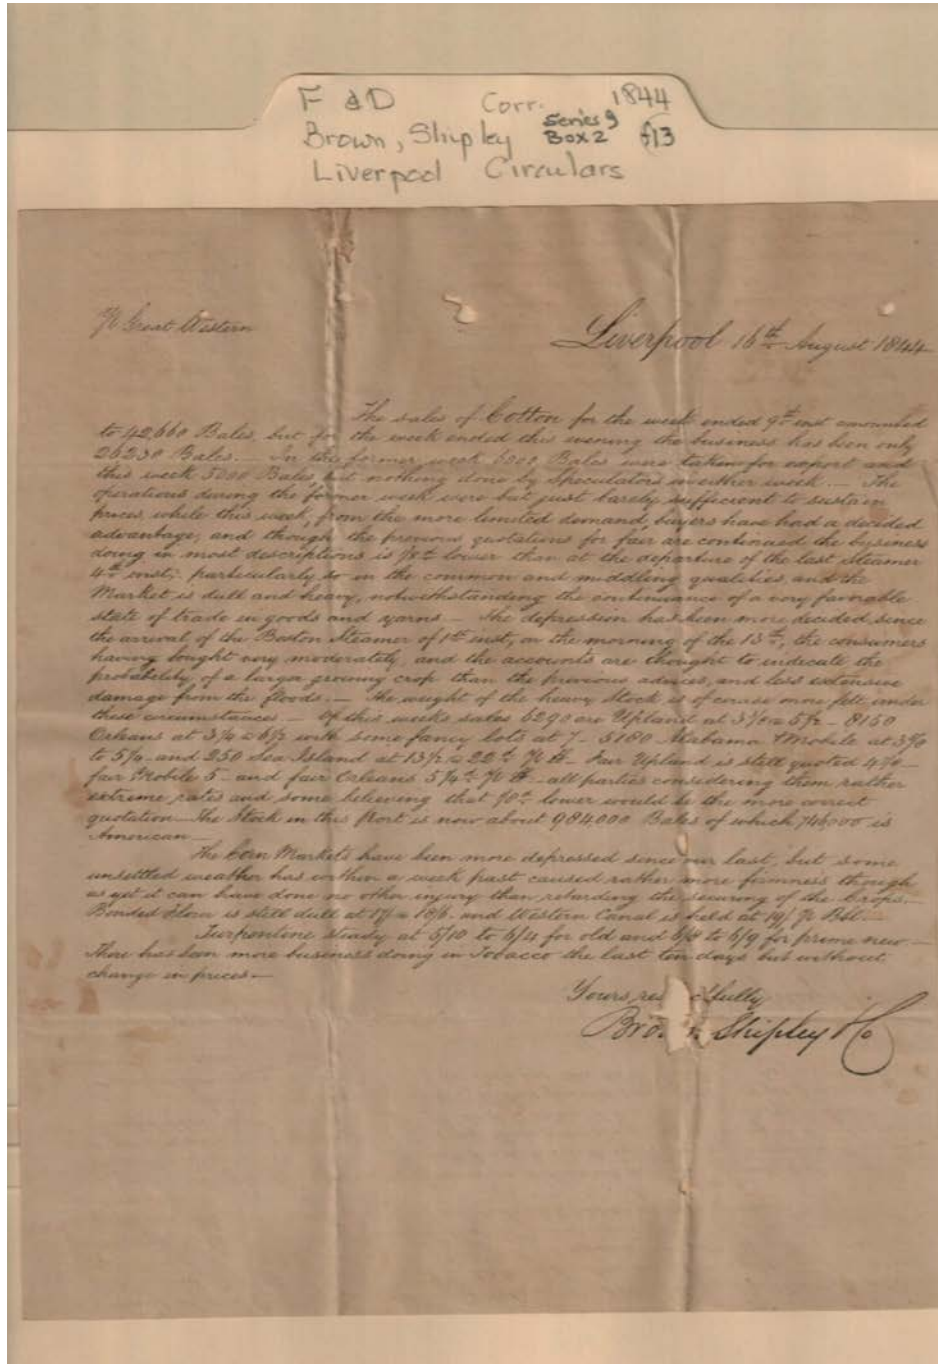 F & D Corr. 1844
Brown, Shipley Series 9 Box 2 f13
Liverpool Circulars
P Great Western
Liverpool 16th August 1844
The sales of Cotton for the week ended 9th inst amounted
to 42,660 Bales, but for the week ended this evening the business has been only
26230 Bales. — In the former week 6000 Bales were taken for export and
this week 3000 Bales, but nothing done by Speculators in either week. — The
operations during the former week were but just barely sufficient to sustain
prices, while this week, from the more limited demand, buyers have had a decided
advantage, and though the previous quotations for fair are continued the business
doing in most descriptions is 1/8d lower than at the departure of the last Steamer
4th inst; particularly so in the common and middling qualities, and the
Market is dull and heavy, notwithstanding the continuance of a very favorable
state of trade in goods and yarns — The depression has been more decided since
the arrival of the Boston Steamer of 1st inst, on the morning of the 13th, the consumers
having bought very moderately, and the accounts are thought to indicate the
probability of a larger growing crop than the previous advices, and less extensive
damage from the floods. — the weight of the heavy Stock is of course more felt under
these circumstances — Of this weeks sales 6290 are Upland at 5 1/2 — 8150
Orleans at 6 1/2 with some fancy lots at 7 — 5180 Alabama & Mobile at
to and 250 Sea Island at 13 1/2 a 22d P lb. Fair Upland is still quoted
fair Mobile 5 — and fair Orleans P lb — all parties considering them rather
extreme rates and some believing that 1/8d lower would be the more correct
quotation — The Stock in this Port is now about 984,000 Bales of which 746,000 is
American —
The Corn Markets have been more depressed since our last, but some
unsettled weather has within a week past caused rather more firmness though
as yet it can have done no other injury than retarding the securing of the Crops. —
Bonded Flour is still dull at a 18/6 and Western Canal is held at 19/ P Bbl —
Turpentine steady at 5/10 to 6/4 for old and 6/8 to 6/9 for prime new —
There has been more business doing in Tobacco the last ten days but without
change in prices —
Yours, res fully
Bro Shipley & Co